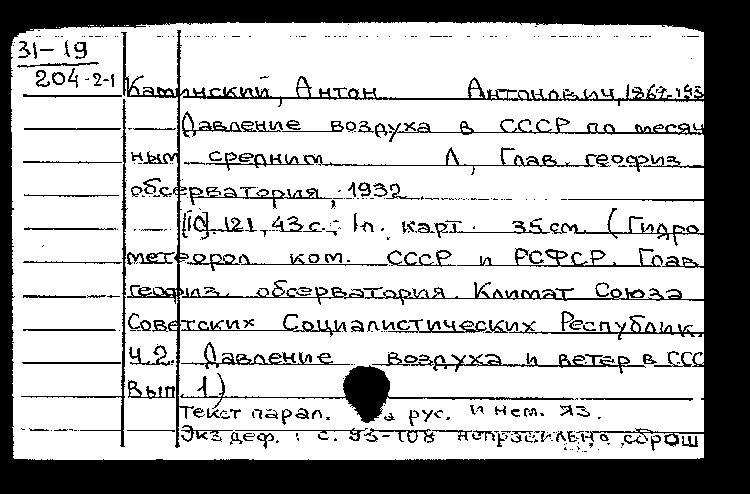 31-19
204-2-1
Каминский, Антон Антонович, 1862-193
Давление воздуха в СССР по месяч
ным средним Л., Глав. геофиз
обсерватория, 1932
[10], 121, 43 с.; 1л. карт. 35см. (Гидро
метеорол ком. СССР и РСФСР. Глав
геофиз. обсерватория. Климат Союза
Советских Социалистических Республик.
Ч.2. Давление воздуха и ветер в ССС
Вып. 1)
Текст парал. рус. и нем. яз.
Экз деф.: с. 93-108 неправильно сброш